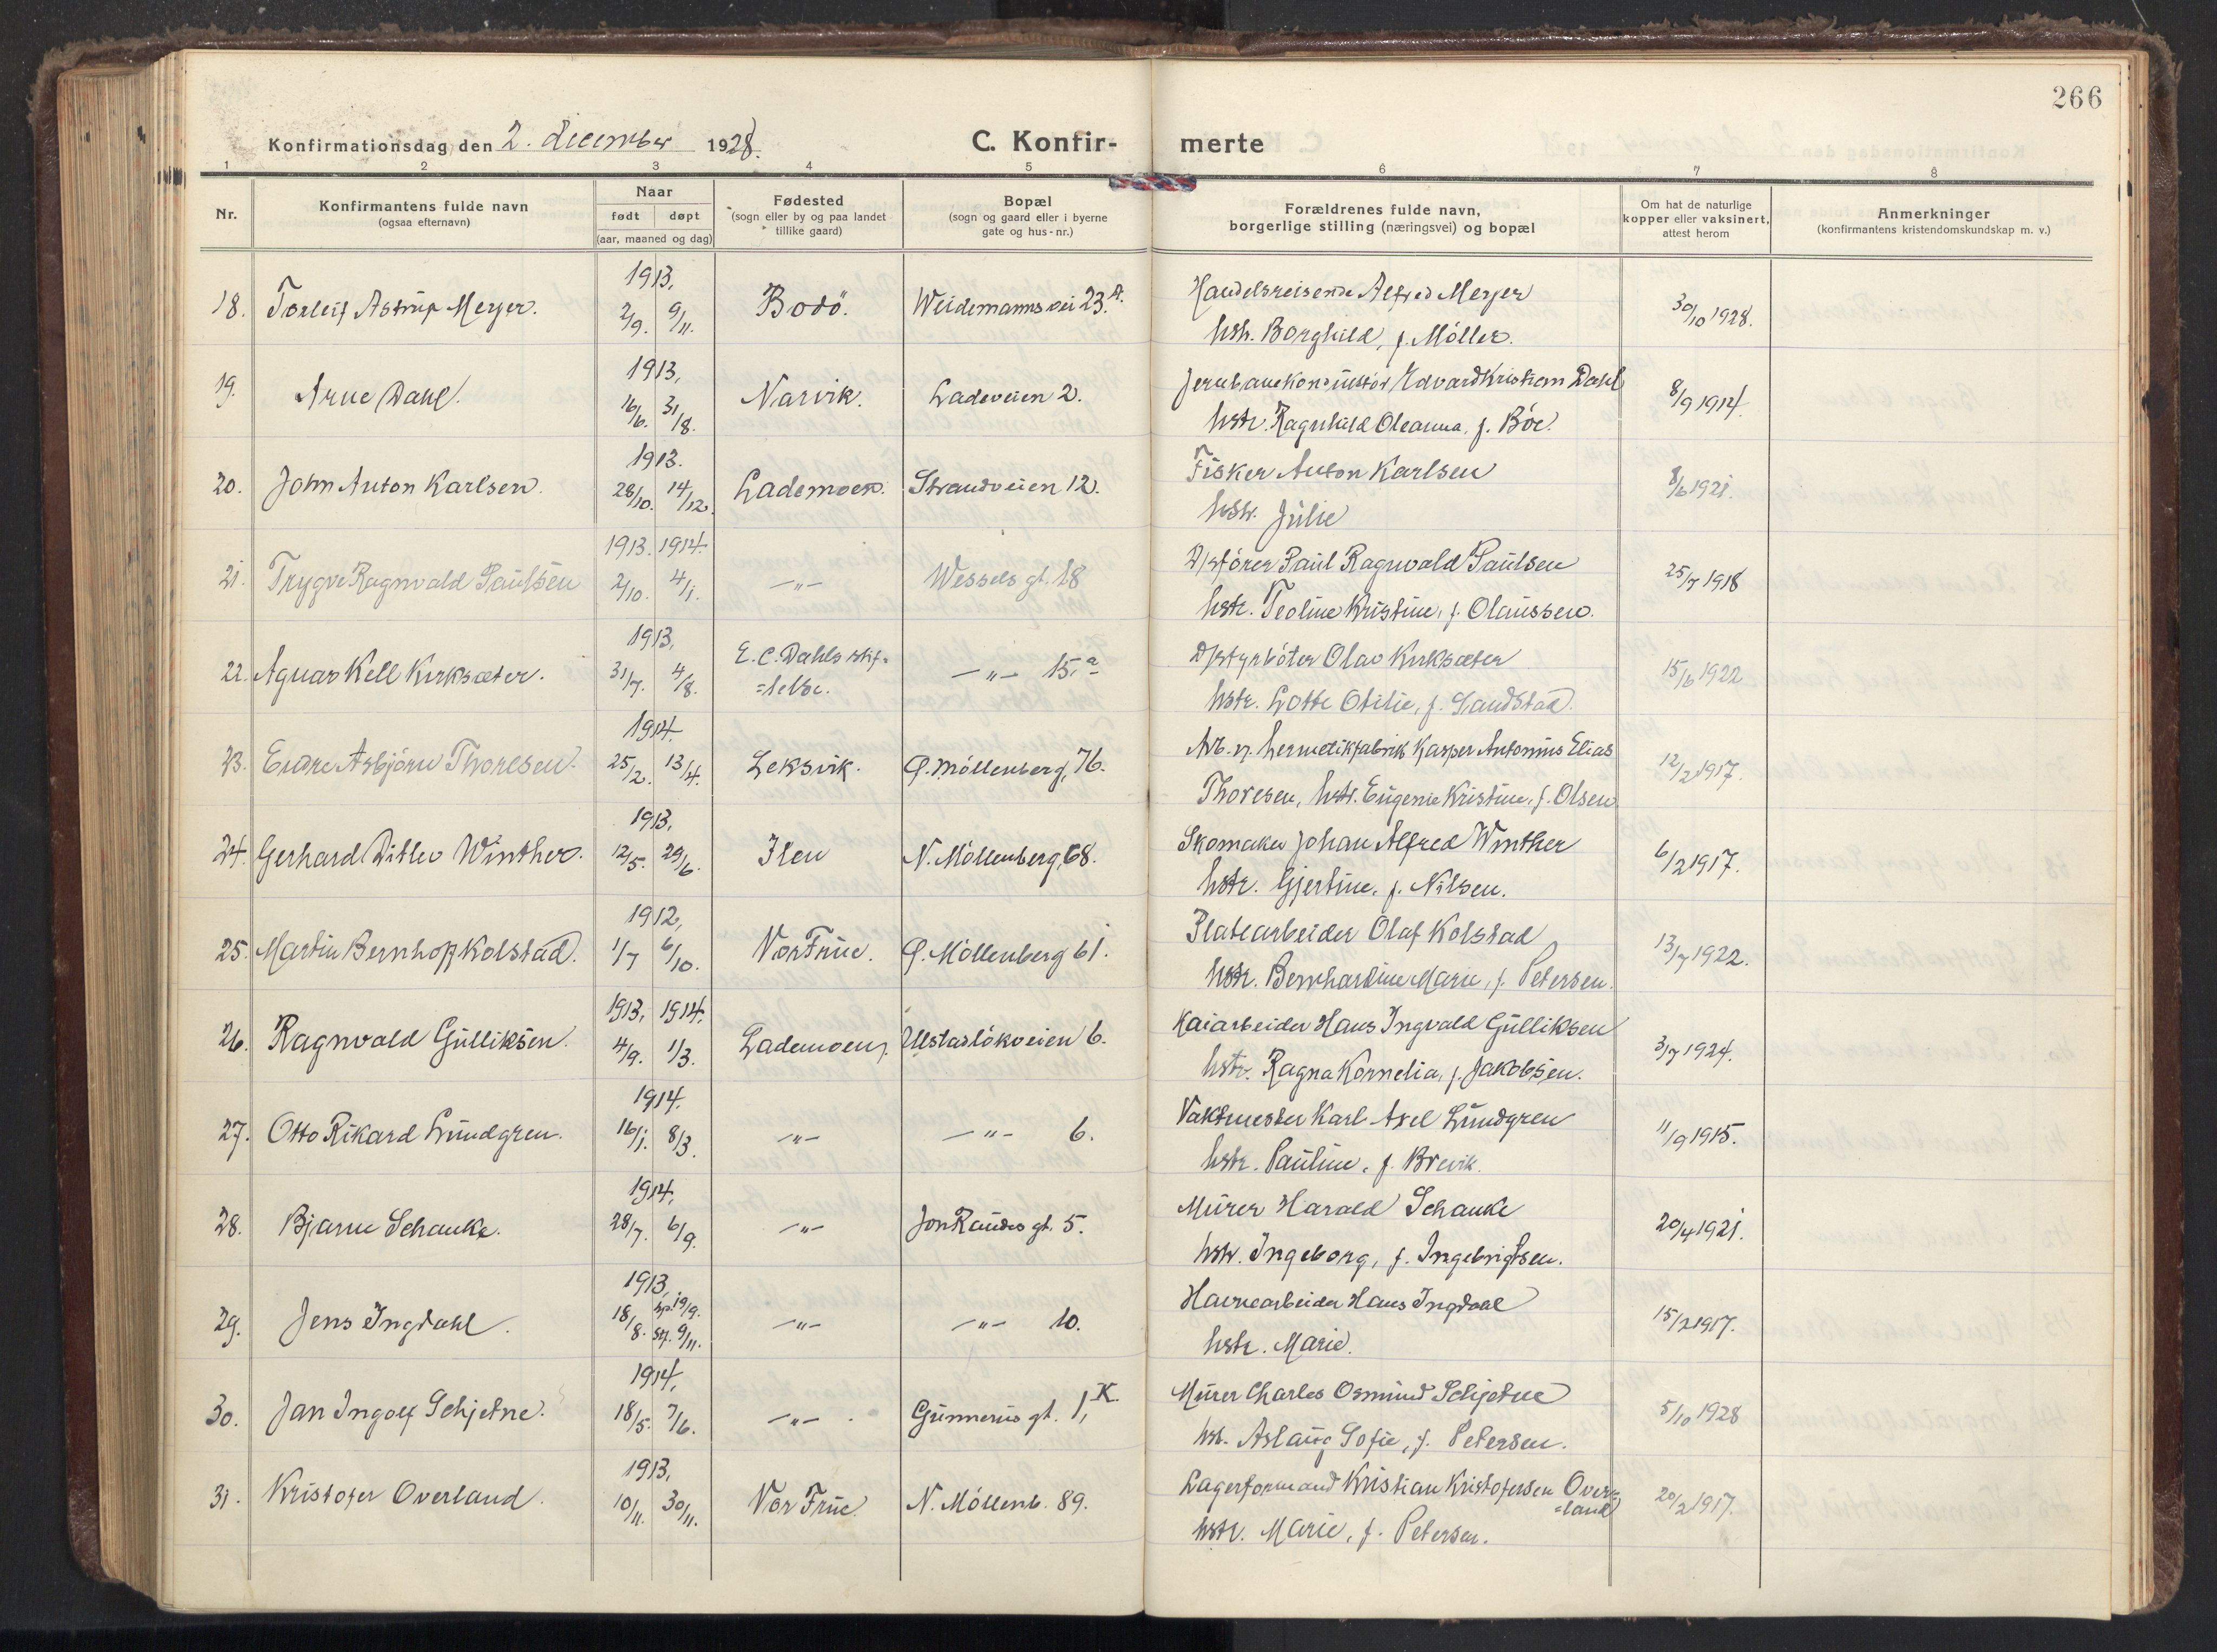 266
Konfirmationsdag den 2. december 1928.
C. Konfir-merte
1 2 3 4 5 6 7 8
Nr.
Konfirmantens fulde navn
(ogsaa efternavn)
Naar
født døpt
(aar, maaned og dag)
Fødested
(sogn eller by og paa landet
tillike gaard)
Bopæl
(sogn og gaard eller i byerne
gate og hus-nr.)
Forældrenes fulde navn,
borgerlige stilling (næringsvei) og bopæl
Om hat de naturlige
kopper eller vaksinert,
attest herom
Anmerkninger
(konfirmantens kristendomskundskap m. v.)
1913,
18. Torleif Astrup Meyer. 2/9. 9/11. Bodö. Weidemannsvei 23.A. Handelsreisende Alfred Meyer 30/10 1928.
hstr. Borghild, f. Möller.
1913,
19. Arne Dahl. 16/6. 31/8. Narvik. Ladeveien 2. Jernbanekonduktör Edvard Kristian Dahl 8/9 1914.
hstr. Ragnhild Oleanna, f. Böe.
1913.
20. John Anton Karlsen. 28/10. 14/12. Lademoen. Strandveien 12. Fisker Anton Karlsen 8/6 1921.
hstr. Julie
1913. 1914.
21. Trygve Ragnvald Paulsen 2/10. 4/1. -"- Wessels gt. 18 D/sförer Paul Ragnvald Paulsen 25/7 1918
hstr. Teoline Kristine, f. Olaussen.
1913,
22. Agnar Kell Kirksæter. 31/7. 4/8. E. C. Dahls stif=
=telse. -"- 15.a D/styrböter Olav Kirksæter 15/6 1922
hstr. Lotte Otilie, f. Sandstad.
1914.
23. Endre Asbjörn Thoresen. 25/2. 13/4. Leksvik. Ø. Möllenberg, 76. Arb. v. hermetikfabrik Kasper Antonius Elias 12/2 1917.
Thoresen, hstr. Eugenie Kristine, f. Olsen
1913,
24. Gerhard Ditlev Winther. 12/5. 29/6. Ilen N. Möllenberg, 68. Skomaker Johan Alfred Winther 6/2 1917.
hstr. Gjertine, f. Nilsen.
1912,
25. Martin Bernhoff Kolstad. 1/7 6/10. Vor Frue. Ø. Möllenberg 61. Platearbeider Olaf Kolstad 13/7 1922.
hstr. Bernhardine Marie, f. Petersen.
1913, 1914.
26. Ragnvald Gulliksen. 4/9. 1/3. Lademoen. Ulstaslökveien 6. Kaiarbeider Hans Ingvald Gulliksen 3/7 1924.
hstr. Ragna Kornelia, f. Jakobsen.
1914.
27. Otto Rikard Lundgren. 16/1. 8/3. -"- -"- 6. Vaktmester Karl Axel Lundgren 11/9 1915.
hstr. Pauline, f. Brevik.
1914,
28. Bjarne Schanke. 28/7. 6/9. -"- Jon Raudes gt. 5. Murer Harald Schanke 20/4 1921.
hstr. Ingeborg, f. Ingebrigtsen.
1913,
29. Jens Ingdahl. 18/8. hp. 19/9. st. 9/11. -"- -"- 10. Havnearbeider Hans Ingdahl 15/2 1917.
hstr. Marie.
1914,
30. Jan Ingolf Schjetne. 18/5. 7/6. -"- Gunnerus gt. 1, K. Murer Charles Osmund Schjetne 5/10 1928
hst. Aslaug Sofie, f. Petersen.
1913,
31. Kristofer Overland. 10/11. 30/11. Vor Frue. N. Möllenb. 89. Lagerformand Kristian Kristofersen Over=
=land 20/2 1917.
hstr. Marie, f. Petersen.